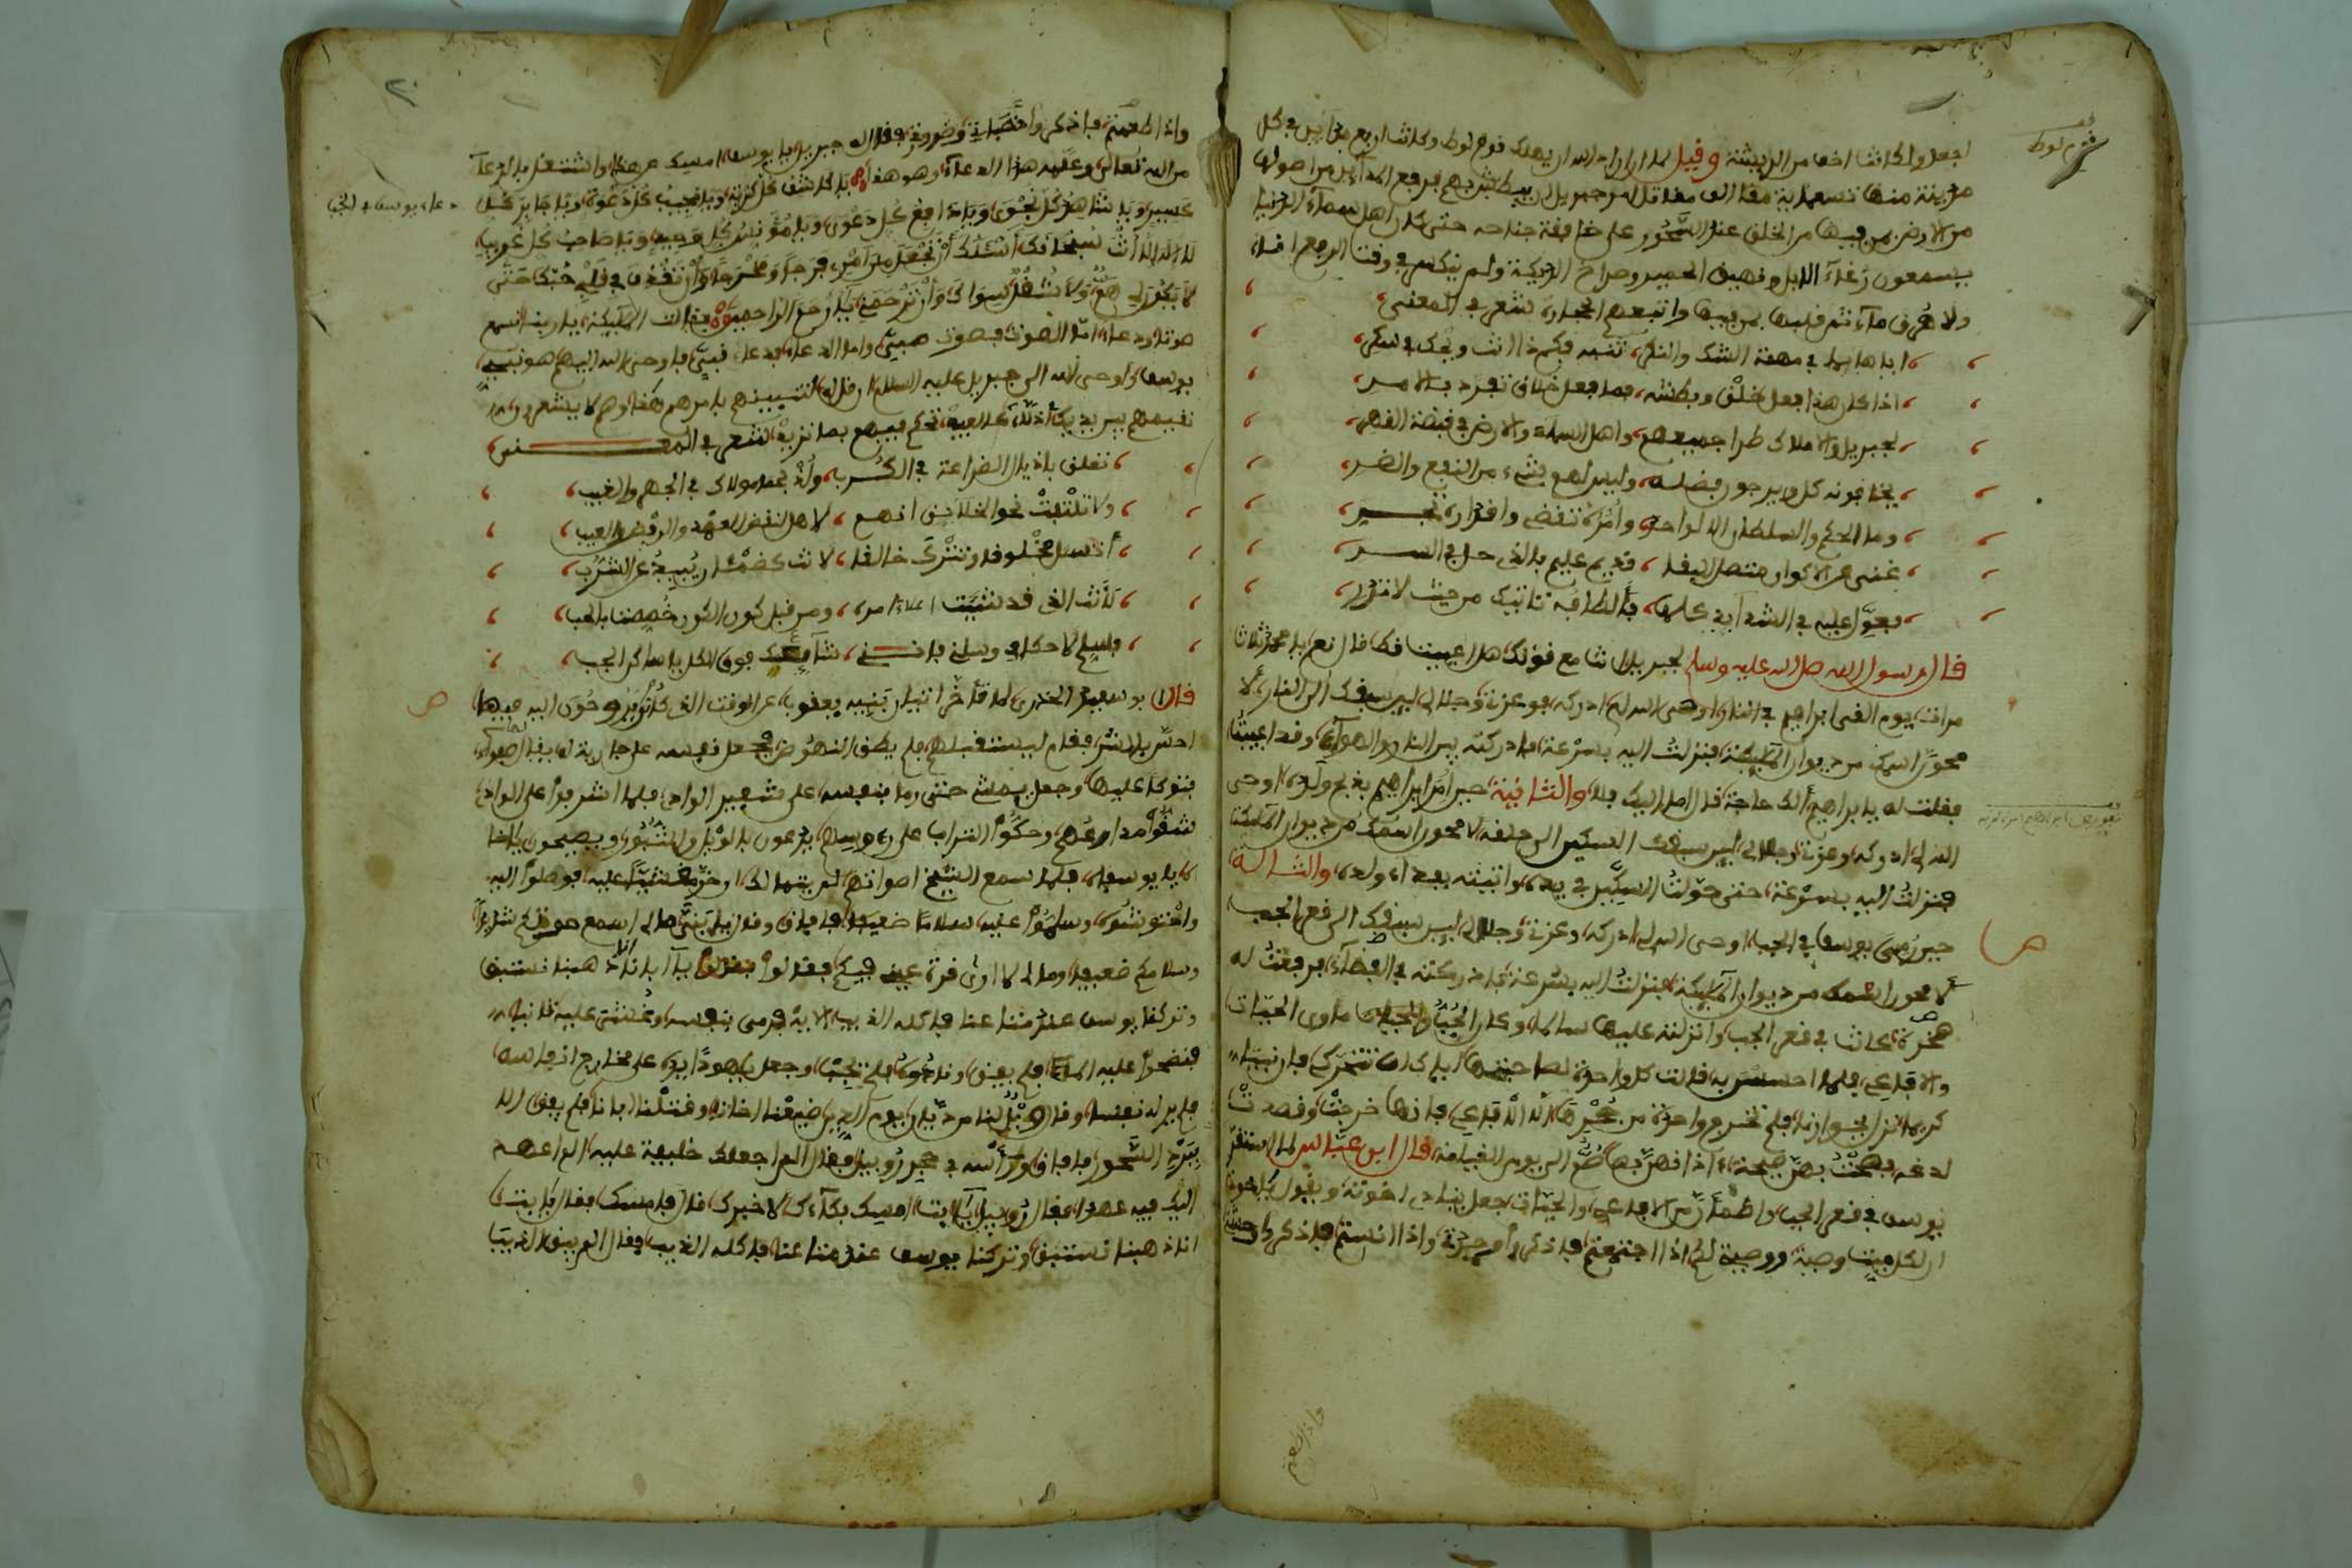 قوم لوط
اجعلوا كانت اخف من الريشة وقيل لما اراد الله ان يهلك قوم لوط وكانت اربع مدائن في كل
مدينة منها تسعماية مقاتل امر جبريل ان يبطش بهم فرفع المدائن من اصولها
من الارض بمن فيها من الخلق عند السحور على خافقة جناحه حتى كان اهل سماء الدنيا
يسمعون رغاء الابل ونهيق الحمير وصراخ الديكة ولم ينكس في وقت الرفع اناء
ولا هرق ماء ثم قلبها بمن فيها واتبعهم الحجارة شعر في المعنى
ايا هايما في مهمة الشك والنكر تنبه فكم ذا انت ويحك في سكر
اذا كان هذا فعل خلق وبطشه فما فعل خلاق تفرد بالامر
لجبريل والاملاك طرا جميعهم واهل السماء والارض في قبضة القهر
يخافونه كل ويرجون فضله وليس لهم شيء من النفع والضر
وما الحكم والسلطان الا لواحد وامره تقضى واقداره تجري
غنى عن الاكوان متصل البقا قديم عليم بالذي حل في السر
فعول عليه في الشدايد كلها فألطافه تاتيك من حيث لا تدر
قال رسول الله صلى الله عليه وسلم لجبريل انت مع قوتك هل اعييت قط قال نعم يا محمد ثلاث
مرات يوم القي ابراهيم في النار اوحى الله الي ادركه فوعزتي وجلالي لين سبقك الى النار لا
محون اسمك من ديوان الملايكة فنزلت اليه بسرعة فادركته بين النار والهواء وقد اعييت
فقلت له يا ابراهيم ألك حاجة قال اما اليك فلا والثانية حين امر ابراهيم بذبح ولده اوحى
الله الي ادركه وعزتي وجلالي لين سبقك السكين الى حلقه لا محون اسمك من ديوان الملايكة
فنزلت اليه بسرعة حتى حولت السكين في يده واتيته بفداء ولده والثالثة
حين رمي يوسف في الجب اوحى الله الي ادركه وعزتي وجلالي لين سبقك الى قعر الجب
لا محون اسمك من ديوان الملايكة فنزلت اليه بسرعة فادركته في الفضاء فرفعت له
صخرة كانت في قعر الجب وانزلته عليها سالما وكان الجب مأوى الحيات
والافاعي فلما احسس به قالت كل واحدة لصاحبتها اياك ان تتحركي فان نبيا
كريما نزل بجوارنا فلم تخرج واحدة من جحرها الا الافاعي فانها خرجت وقصدت
لدغه فصحت بهن صيحة اذانهن بها صم الى يوم القيامة قال ابن عباس لما استقر
يوسف في قعر الجب واطمأن من الافاعي والحيات جعل ينادي اخوته ويقول يا اخوة
ان لكل ميت وصية ووصيتي لكم اذا اجتمعتم فاذكروا وحدتي واذا انستم فاذكروا وحشتي
واذا طعمتم
واذا طعمتم فاذكروا
من الله تعالى وعلمه هذا الدعاء وهو هذا يا كاشف كل كربة ويا مجيب كل دعوة ويا جابر كل
دعاء يوسف في الجب
كسير ويا شاهد كل نجوى ويا دافع كل دعوى ويا مؤنس كل وحيد ويا صاحب كل غريب
لا اله الا انت سبحانك اسئلك ان تجعل من امري فرجا ومخرجا وان تقذف في قلبي حبك حتى
لا يكون لي هم ولا شغل سواك وان ترحمني يا ارحم الراحمين فقالت الملايكة يا ربنا نسمع
صوتا ودعاء اما الصوت فصوت صبي واما الدعاء فدعاء نبي فاوحى الله اليهم هو نبيي
يوسف واوحى الله الى جبريل عليه السلام ان قل له لتنبينهم بامرهم هذا وهم لا يشعرون
نقيمهم بين يديك اذلة كالعبيد تحكم فيهم بما تريد شعر في المعنى
تعلق باذيال الضراعة في الكرب ولذ بحمى مولاك في الجهر والغيب
ولا تلتفت نحو الخلائق انهم لاهل لنقض العهد والرفض والعيب
أتسل مخلوقا وتترك خالقا لانت كضمئان يبيد عن الشرب
قال ابو سعيد الخدري لما تأخر اتيان بنيه يعقوب عن الوقت الذي كانوا يروحون اليه فيها
احس بالشر فقام ليستقبلهم فلم يطق النهوض فجعل نفسه على جارية له يقال لها صفراء
يتوكأ عليها وجعل يمشي حتى رمى بنفسه على شفير الواد فلما اشرفوا على الواد
شقوا مدارعهم وحكوا التراب على رءوسهم يدعون بالويل والثبور ويصيحون يا اخا
يا يوسف فلما سمع الشيخ اصواتهم لم يتمالك ان خر مغشيا عليه فوصلوا اليه
وسلموا عليه سلاما ضعيفا فافاق وقال يا بني مالي اسمع صوتكم شديدا
وسلامكم ضعيفا ومالي لا ارى قرة عيني فيكم فقالوا يا ابانا انا ذهبنا نستبق
وتركنا يوسف عند متاعنا فاكله الذيب الاية فرمى بنفسه وغشي عليه ثانيا
فنضحوا عليه الماء فلم يفق ونادوه فلم يجب وجعل يهودا يده على مخارج انفاسه
فلم ير له نفسا وقال ويل لنا من ديان يوم الدين ضيعنا اخانا وقتلنا ابانا فلم يفق الا
ببرد السحور فافاق ورأسه في حجر روبيل فقال الم اجعلك خليفة عليه الم اعهد
اليك فيه عهدا فقال روبيل يا ابت امسك بكاءك لاخبرك قال فامسك فقال يا ابت
انا ذهبنا نستبق وتركنا يوسف عند متاعنا فاكله الذيب فقال الم